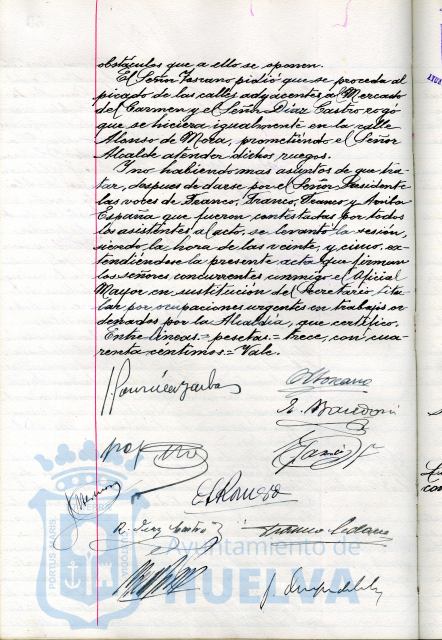 obstáculos que a ello se oponen.
El Señor Toscano pidió que se proceda al
picado de las calles adyacentes al Mercado
del Carmen y el Señor Díaz Castro rogó
que se hiciera igualmente en la calle
Alonso de Mora, prometiendo el Señor
Alcalde atender dichos ruegos.
Y no habiendo mas asuntos de que tra-
tar, despues de darse por el Señor Presidente
las voces de Franco, Franco, Franco y Arriba
España que fueron contestadas por todos
los asistentes al acto, se levantó la sesión,
siendo la hora de las veinte y cinco, ex-
tendiéndose la presente acta que firman
los señores concurrentes conmigo el Oficial
Mayor en sustitución del Secretario titu-
lar por ocupaciones urgentes en trabajos or-
denados por la Alcaldía, que certifico.
Entre lineas = pesetas = trece, con cua-
renta centimos = Vale.
Toscano
Ayuntamiento de
HUELVA
PORTUS MARIS